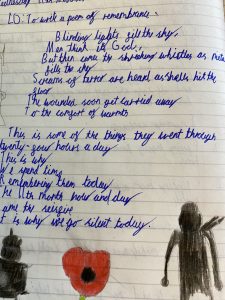 LO: To write a poem of remembrance.
Blinding lights fill the sky,
Men think its God,
But then come the shreaking whistles as
fills the sky
Screams of terror are heard as shells hit the
floor
The wounded soon get carried away
To the comfort of
This is some of the things they went through
twenty-four hours a day
This is why
We spend time
Remembering them today
the 11th month hour and day
time to
It is why we go silent today.